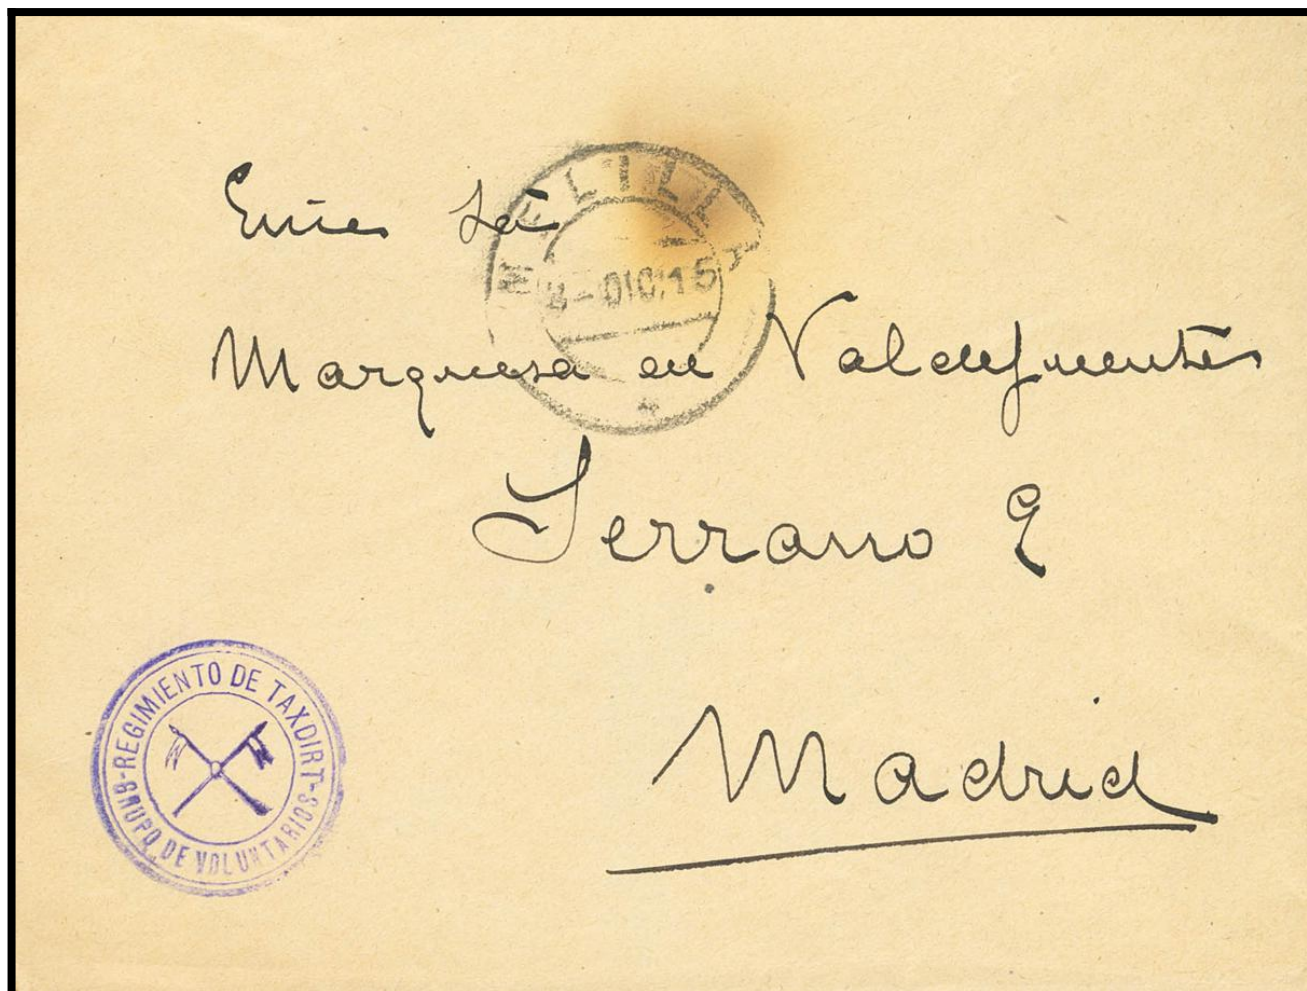 MELILLA
DIC 15
Marquesa de Valdefuentes
Serrano 9
Madrid
-REGIMIENTO DE TAXDIRT-
GRUPO DE VOLUNTARIOS